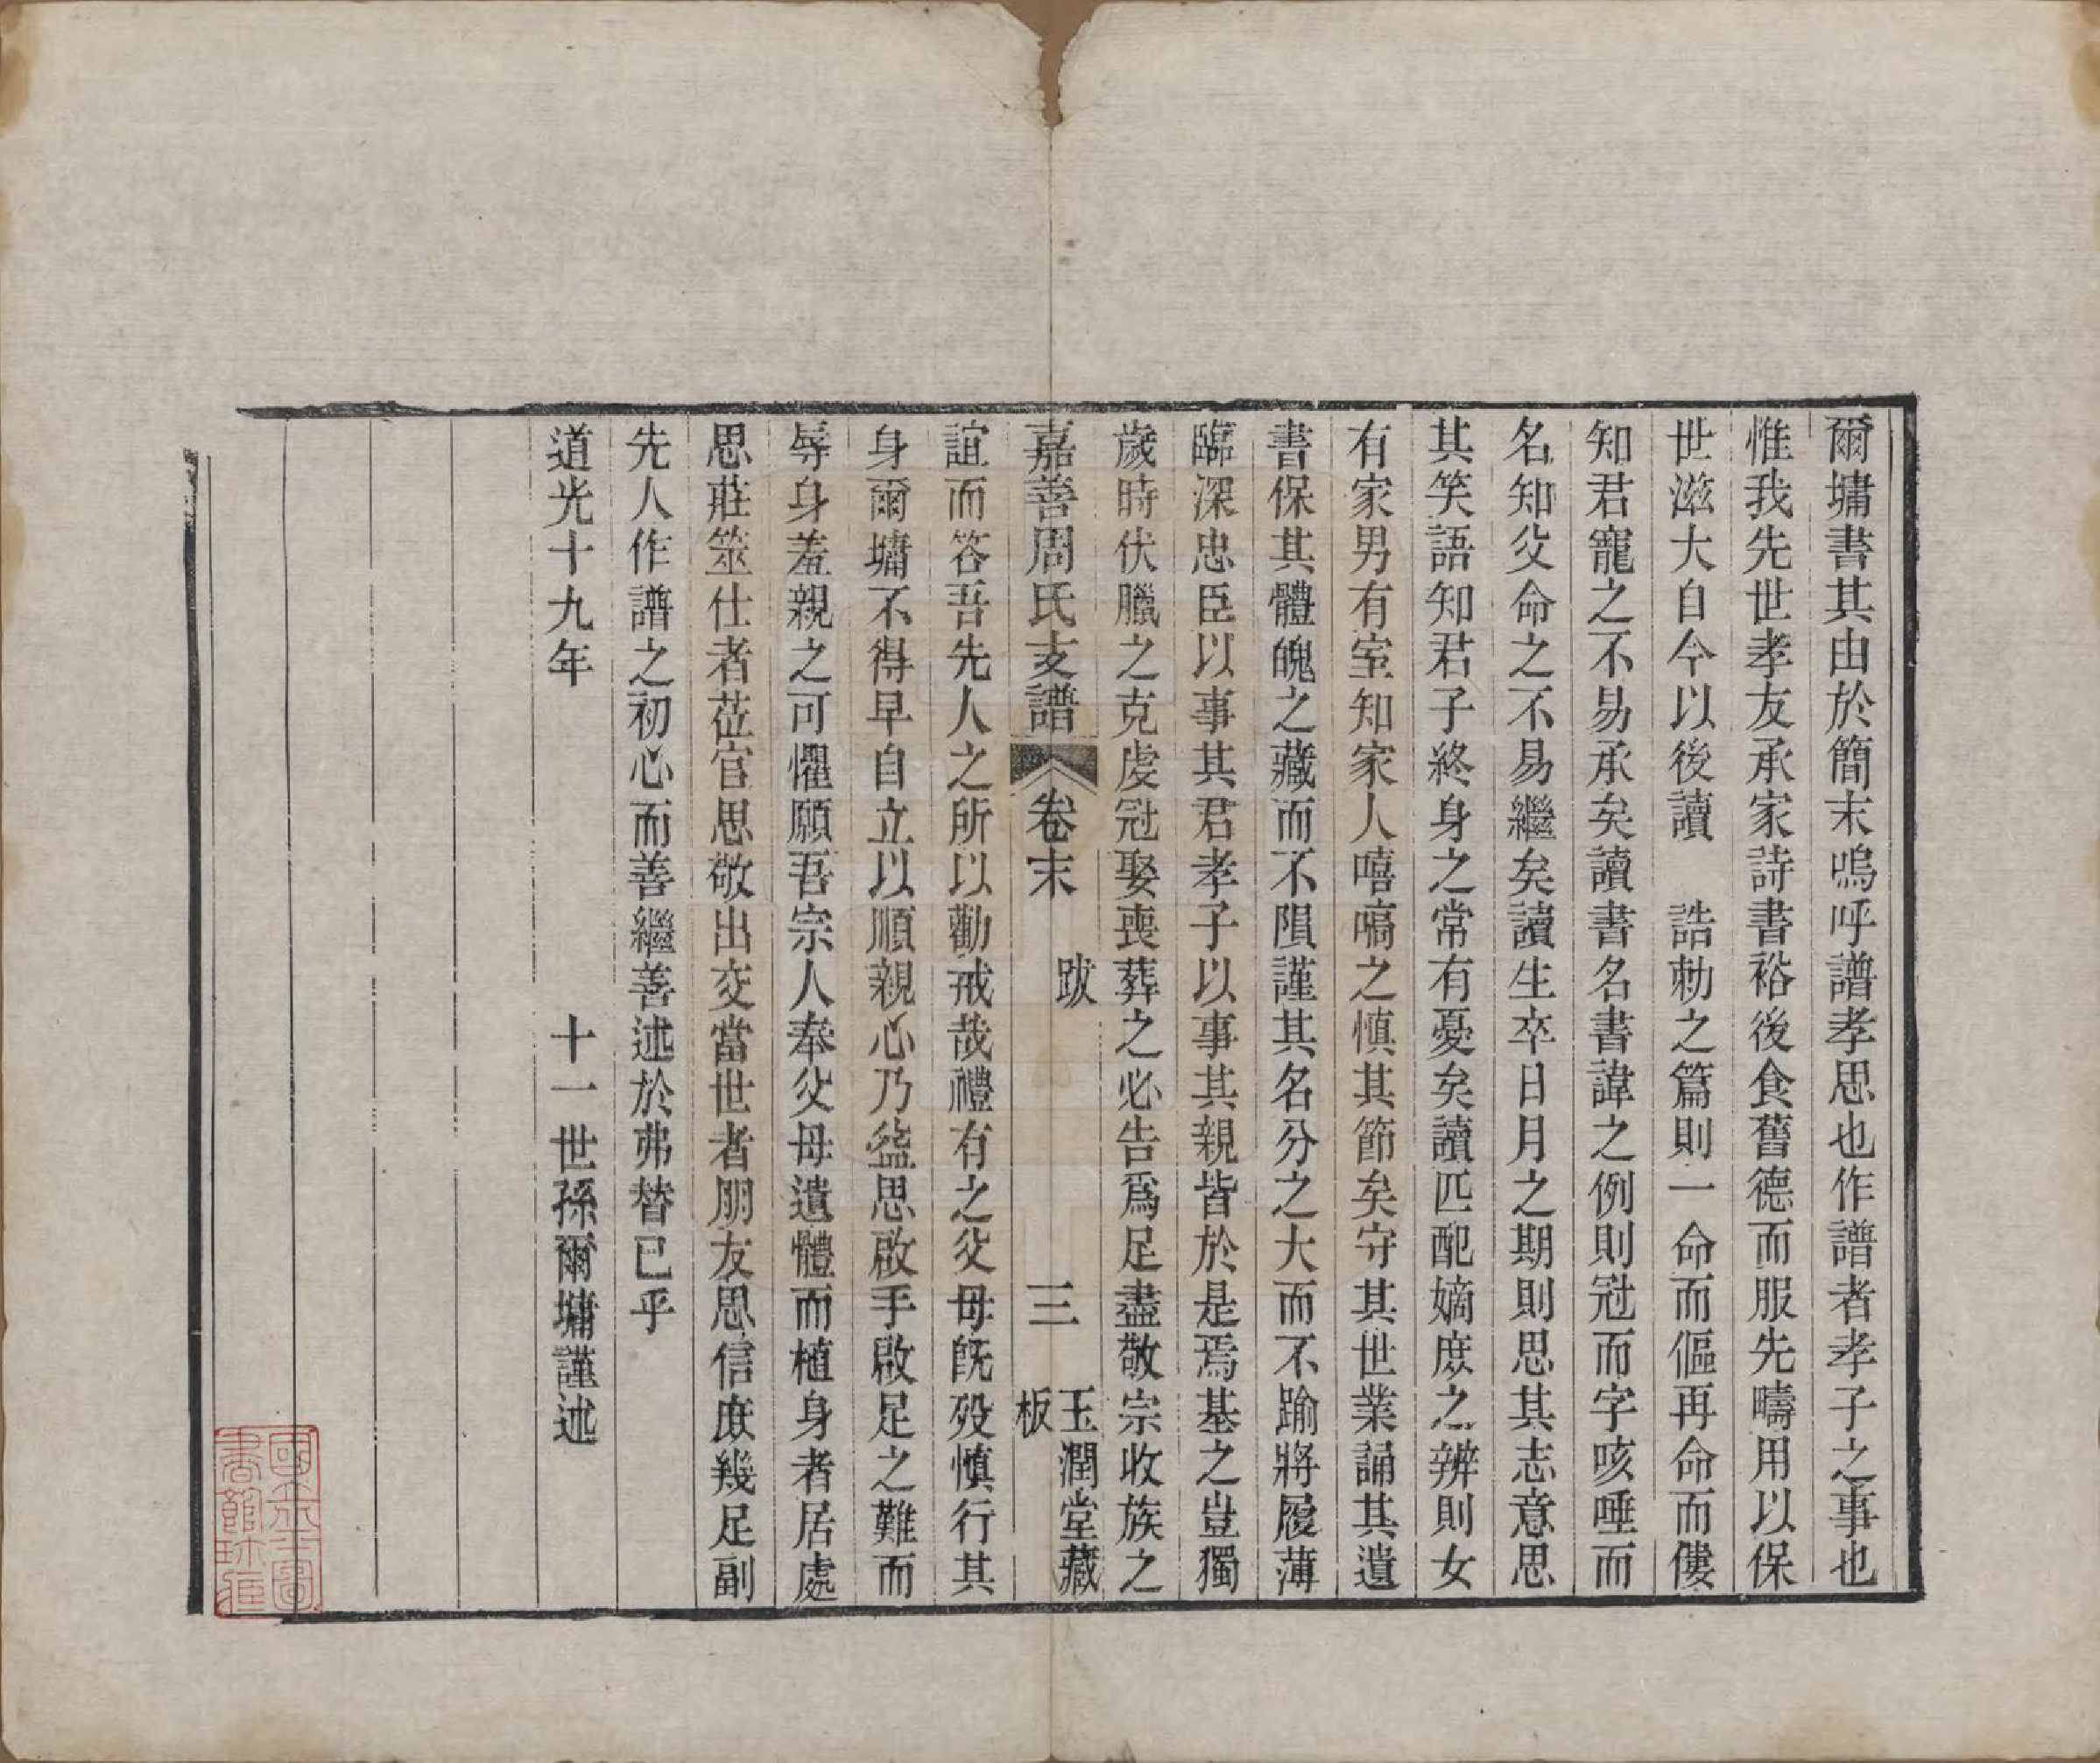 爾墉書其由於簡末嗚呼譜孝思也作譜者孝子之事也
惟我先世孝友承家詩書裕後食舊德而服先疇用以保
世滋大自今以後讀　誥勅之篇則一命而傴再命而僂
知君寵之不易承矣讀書名書諱之例則冠而字咳唾而
名知父命之不易繼矣讀生卒日月之期則思其志意思
其笑語知君子終身之常有憂矣讀匹配嫡庶之辨則女
有家男有室知家人嘻嗃之慎其節矣守其世業誦其遺
書保其體魄之藏而不隕謹其名分之大而不踰將履薄
臨深忠臣以事其君孝子以事其親皆於是焉基之豈獨
歲時伏臘之克虔冠娶喪葬之必告爲足盡敬宗收族之
嘉善周氏支譜　卷末　跋　三　玉潤堂藏板
誼而答吾先人之所以勸戒哉禮有之父母旣歿愼行其
身爾墉不得早自立以順親心乃益思啟手啟足之難而
辱身羞親之可懼願吾宗人奉父母遺體而植身者居處
思莊筮仕者莅官思敬出交當世者朋友思信庶幾足副
先人作譜之初心而善繼善述於弗替已乎
道光十九年　十一世孫爾墉謹述
國立北平圖書館珍藏